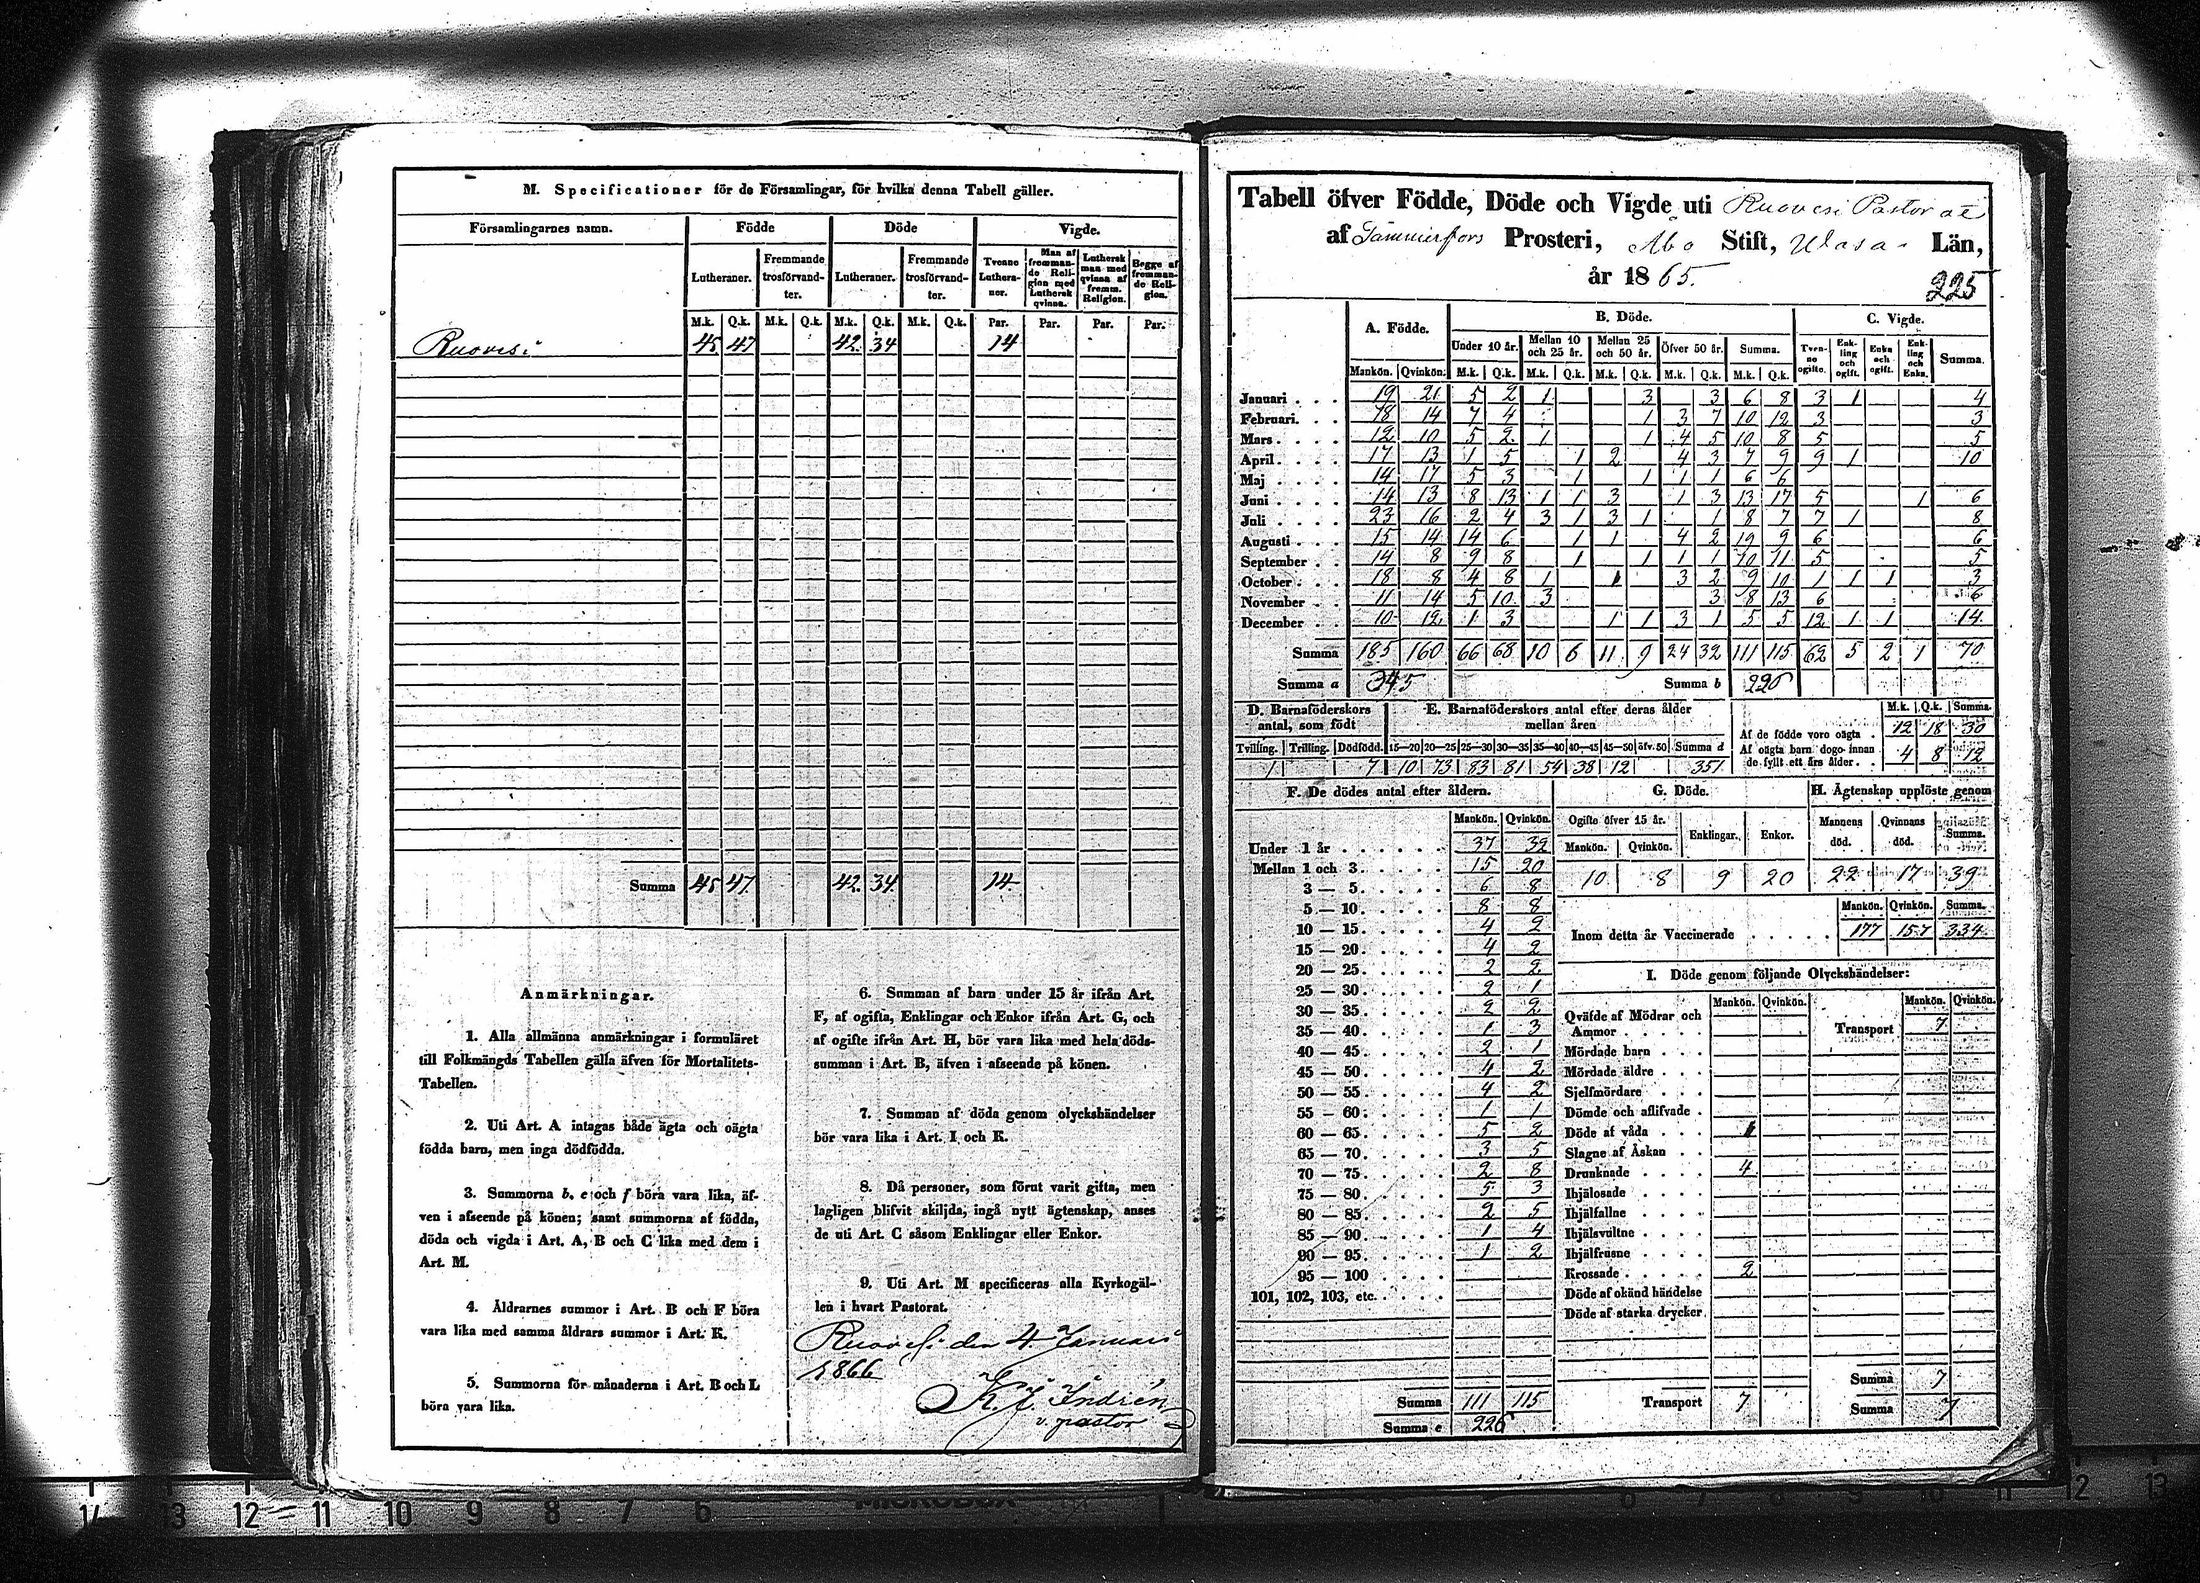 M. Specificationer för de Församlingar, för hvilka denna Tabell gäller.
Församlingarnes namn. Födde Döde Vigde.
Lutheraner. Fremmande trosförvandter. Lutheraner. Fremmande trosförvandter. Tvenne Lutheraner. Man af fremmande Religion med Luthersk qvinna. Luthersk man med qvinna af fremm. Religion. Begge af fremmande Religion.
M.k. Q.k. M.k. Q.k. M.k. Q.k. M.k. Q.k. Par. Par. Par. Par.
Ruovesi 45 47 42 34 14
Summa 45 47 42 34 14
Anmärkningar.
1. Alla allmänna anmärkningar i formuläret
till Folkmängds Tabellen gälla äfven för Mortalitets-
Tabellen.
2. Uti Art. A intagas både ägta och oägta
födda barn, men inga dödfödda.
3. Summorna b, e och f böra vara lika, äf-
ven i afseende på könen; samt summorna af födda,
döda och vigda i Art. A, B och C lika med dem i
Art. M.
4. Åldrarnes summor i Art. B och F böra
vara lika med samma åldrars summor i Art. K.
5. Summorna för månaderna i Art. B och L
böra vara lika.
6. Summan af barn under 15 år ifrån Art.
F, af ogifta, Enklingar och Enkor ifrån Art. G, och
af ogifte ifrån Art. H, bör vara lika med hela döds-
summan i Art. B, äfven i afseende på könen.
7. Summan af döda genom olyckshändelser
bör vara lika i Art. I och K.
8. Då personer, som förut varit gifta, men
lagligen blifvit skiljda, ingå nytt ägtenskap, anses
de uti Art. C såsom Enklingar eller Enkor.
9. Uti Art. M specificeras alla Kyrkogäl-
len i hvart Pastorat.
Ruovesi den 4 Januari
1866
K. J. Indrén
v. pastor
Tabell öfver Födde, Döde och Vigde uti Ruovesi Pastorat
af Tammerfors Prosteri, Åbo Stift, Wasa Län,
år 1865.
225
A. Födde. B. Döde. C. Vigde.
Under 10 år. Mellan 10 och 25 år. Mellan 25 och 50 år. Öfver 50 år. Summa. Tvenne ogifte. Enkling och ogift. Enka och ogift. Enkling och Enka. Summa.
Mankön. Qvinkön. M.k. Q.k. M.k. Q.k. M.k. Q.k. M.k. Q.k. M.k. Q.k.
Januari 19 21 5 2 1 3 3 6 8 3 1 4
Februari 18 14 7 4 1 3 7 10 12 3 3
Mars 12 10 5 2 1 1 4 5 10 8 5 5
April 17 13 1 5 1 2 4 3 7 9 9 1 10
Maj 14 17 5 3 1 1 1 1 6 6
Juni 14 13 8 13 1 1 3 1 3 13 17 5 1 6
Juli 23 16 2 4 3 1 3 1 1 8 7 7 1 8
Augusti 15 14 14 6 1 1 4 2 19 9 6 6
September 14 8 9 8 1 1 1 1 10 11 5 5
October 18 8 4 8 1 1 3 2 9 10 1 1 1 3
November 11 14 5 10 3 3 8 13 6 6
December 10 12 1 3 1 1 3 1 5 5 12 1 1 14
Summa 185 160 66 68 10 6 11 9 24 32 111 115 62 5 2 1 70
Summa a 345 Summa b 226
D. Barnaföderskors antal, som födt
Tvilling. Trilling. Dödfödd.
1 7
E. Barnaföderskors antal efter deras ålder mellan åren
15—20 20—25 25—30 30—35 35—40 40—45 45—50 öfv. 50 Summa d
10 73 83 81 54 38 12 351
M.k. Q.k. Summa.
Af de födde voro oägta 12 18 30
Af oägta barn dogo innan de fyllt ett års ålder 4 8 12
F. De dödes antal efter åldern.
Mankön. Qvinkön.
Under 1 år 37 32
Mellan 1 och 3 15 20
3 — 5 6 8
5 — 10 8 8
10 — 15 4 2
15 — 20 4 2
20 — 25 2 2
25 — 30 2 1
30 — 35 2 2
35 — 40 1 3
40 — 45 2 1
45 — 50 4 2
50 — 55 4 2
55 — 60 1 1
60 — 65 5 2
65 — 70 3 5
70 — 75 2 8
75 — 80 5 3
80 — 85 2 5
85 — 90 1 4
90 — 95 1 2
95 — 100
101, 102, 103, etc.
Summa 111 115
Summa e 226
G. Döde.
Ogifte öfver 15 år. Enklingar. Enkor.
Mankön. Qvinkön.
10 8 9 20
H. Ägtenskap upplöste genom
Mannens död. Qvinnans död. Summa.
22 17 39
Mankön. Qvinkön. Summa.
Inom detta år Vaccinerade 177 157 334
I. Döde genom följande Olyckshändelser:
Mankön. Qvinkön. Mankön. Qvinkön.
Qväfde af Mödrar och Ammor Transport 7
Mördade barn
Mördade äldre
Sjelfmördare
Dömde och aflifvade
Döde af våda 1
Slagne af Åskan
Drunknade 4
Ihjälosade
Ihjälfallne
Ihjälsvultne
Ihjälfrusne
Krossade 2
Döde af okänd händelse
Döde af starka drycker
Summa 7
Transport 7 Summa 7
14 13 12 11 10 9 8 7 6 1 6 7 8 9 10 11 12 13